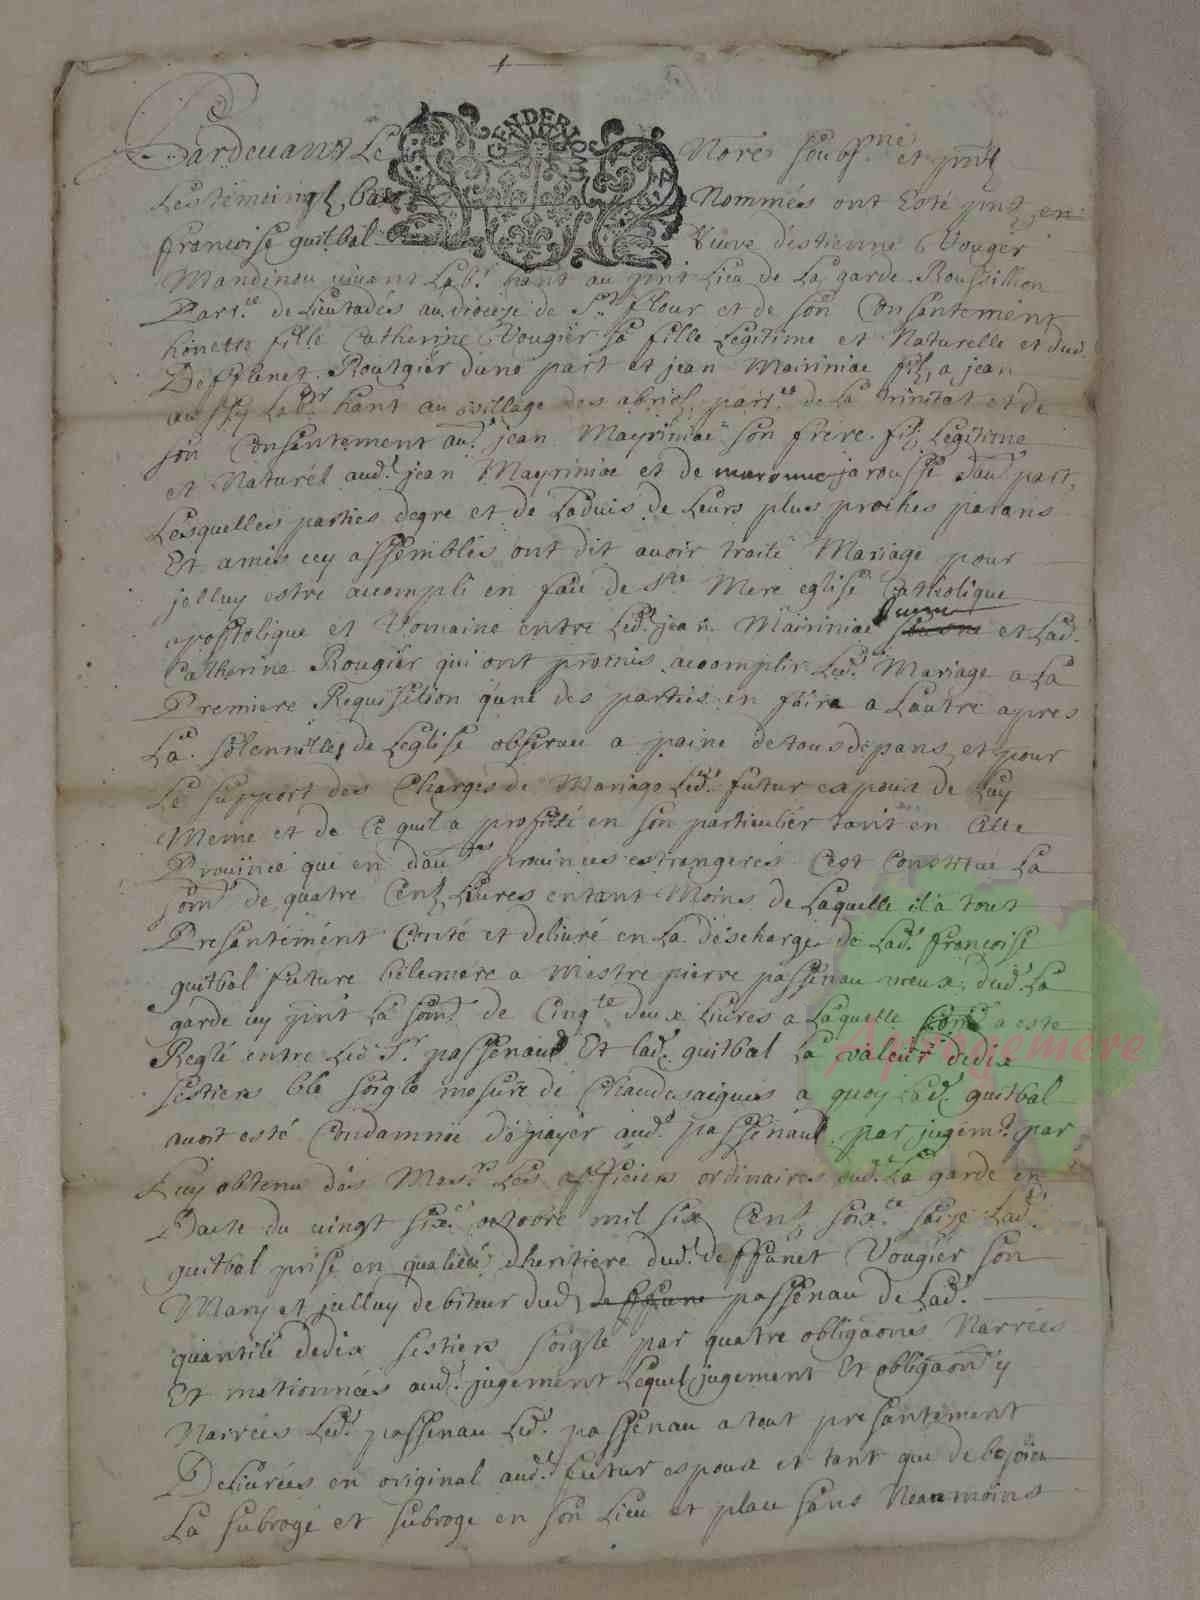 Pardevant Le Nore soubs.né et pnts
Les témoings bas Nommés ont Esté pnts en
francoise guitbal Veuve destienne Vougier
Mandinou vivant Labr. hant au pnt Lieu de La garde Roussillon
Parr.ce de Lieutadés au diocize de St. flour et de son Consantement
honette fille Catherine Vougier sa fille Legitime et Naturelle et dud.
Deffunct Routgiér dune part et jean Mairiniac fils a jean
aussy Labr. hant au village des abriels parr.ce de La trinitat et de
son Consantement aud. jean Mayriniac son frere fils Legitime
et Naturél aud. jean Mayriniac et de maronne jarousse dau. part,
Lesquelles parties degre et de Ladvis de Leurs plus proches parans
Et amis icy assemblés ont dit avoir traité Mariage pour
jelluy estre acompli en face de Ste. Mere eglise Catholique
apostolique et Romaine entre Led. jean Mairiniac jeune et Lad.
Catherine Rougiér qui ont promis acomplir Led. Mariage a La
Premiere Requisition qune des parties en faira a Lautre apres
La. solennites de Leglise observee a paine de tous depans et pour
Le support des Charges de Mariage Led. futur espoux de Luy
Meme et de Ce quil a profité en son particuliér tant en Cette
Province qui en dau.tres provinces estrangeres Cest Constitué La
som.e de quatre Cents Livres entant Moins de Laquelle il a tout
Presantémént Conté et delivré en La déscharge de Lad. francoise
guitbal future bélemere a Mestre pierre passenau vieux dud. La
garde icy pnt La som.e de Cinq.te deux Livres a Laquelle som.e a este
Reglé entre Led Sr. passenaud Et lad. guitbal La valeur dedix
sestiers blé soigle mesure de Chaudesaigues a quoy Lad. guitbal
avoit esté Condamnée de payer aud. passénaud par jugem.t par
Luy obtenu dés Mess.rs Les officiers ordinaires dud. La garde en
Date du vingt six.e octobre mil six Cents soix.te saize Lad.
guitbal prise en qualitté dheritiere dud. deffunct Vougiér son
Mary et julluy debiteur dud. deffunc passénau de Lad.
quantité dedix sestiers soigle par quatre obligaōnes Narrées
Et mationnées aud. jugemént Lequel jugement Et obligaōn y
Narrées Led. passenau Led. passénau a tout presantement
Delivrées en original aud. futur espoux et tant que de besoin
La subrogé et subroge en son Lieu et place sans Neanmoins
Aprogemere